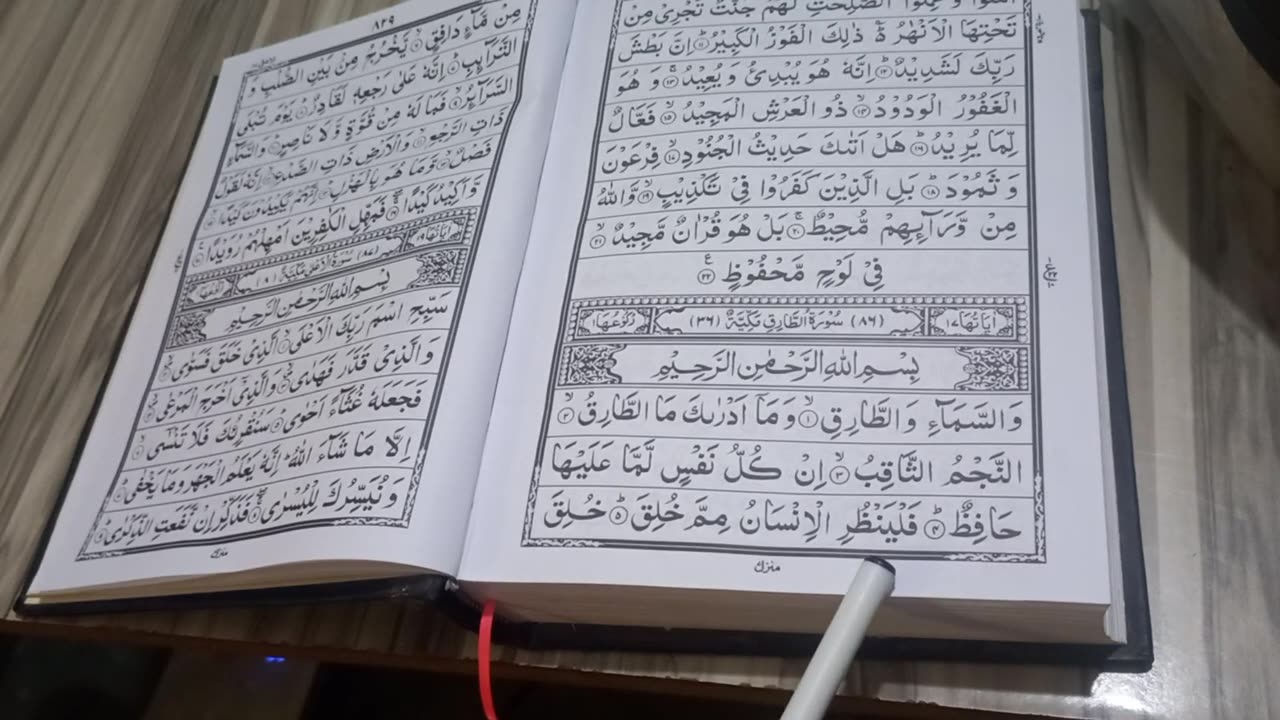 اٰمَنُوْا وَ عَمِلُوا الصّٰلِحٰتِ لَهُمْ جَنّٰتٌ تَجْرِیْ مِنْ
تَحْتِهَا الْاَنْهٰرُ ؕ۬ ذٰلِكَ الْفَوْزُ الْكَبِیْرُ ؕ۱۱ اِنَّ بَطْشَ
رَبِّكَ لَشَدِیْدٌ ؕ۱۲ اِنَّهٗ هُوَ یُبْدِئُ وَ یُعِیْدُ ۚ۱۳ وَ هُوَ
الْغَفُوْرُ الْوَدُوْدُ ۙ۱۴ ذُو الْعَرْشِ الْمَجِیْدُ ۙ۱۵ فَعَّالٌ
لِّمَا یُرِیْدُ ؕ۱۶ هَلْ اَتٰىكَ حَدِیْثُ الْجُنُوْدِ ۙ۱۷ فِرْعَوْنَ
وَ ثَمُوْدَ ؕ۱۸ بَلِ الَّذِیْنَ كَفَرُوْا فِیْ تَكْذِیْبٍ ۙ۱۹ وَّ اللّٰهُ
مِنْ وَّرَآىِٕهِمْ مُّحِیْطٌ ۚ۲۰ بَلْ هُوَ قُرْاٰنٌ مَّجِیْدٌ ۙ۲۱
فِیْ لَوْحٍ مَّحْفُوْظٍ ۲۲ ع
اٰیَاتُهَا ۱۷ (۸۶) سُوْرَةُ الطَّارِقِ مَكِّیَّةٌ (۳۶) رُكُوْعُهَا ۱
بِسْمِ اللّٰهِ الرَّحْمٰنِ الرَّحِیْمِ
وَ السَّمَآءِ وَ الطَّارِقِ ۙ۱ وَ مَاۤ اَدْرٰىكَ مَا الطَّارِقُ ۙ۲
النَّجْمُ الثَّاقِبُ ۙ۳ اِنْ كُلُّ نَفْسٍ لَّمَّا عَلَیْهَا
حَافِظٌ ؕ۴ فَلْیَنْظُرِ الْاِنْسَانُ مِمَّ خُلِقَ ؕ۵ خُلِقَ
منزل
۸۲۹
مِنْ مَّآءٍ دَافِقٍ ۙ۶ یَّخْرُجُ مِنْۢ بَیْنِ الصُّلْبِ وَ
التَّرَآىِٕبِ ؕ۷ اِنَّهٗ عَلٰى رَجْعِهٖ لَقَادِرٌ ؕ۸ یَوْمَ تُبْلَى
السَّرَآىِٕرُ ۙ۹ فَمَا لَهٗ مِنْ قُوَّةٍ وَّ لَا نَاصِرٍ ؕ۱۰ وَ السَّمَآءِ
ذَاتِ الرَّجْعِ ۙ۱۱ وَ الْاَرْضِ ذَاتِ الصَّدْعِ ۙ۱۲ اِنَّهٗ لَقَوْلٌ
فَصْلٌ ۙ۱۳ وَّ مَا هُوَ بِالْهَزْلِ ؕ۱۴ اِنَّهُمْ یَكِیْدُوْنَ كَیْدًا ۙ۱۵
وَّ اَكِیْدُ كَیْدًا ۚۖ۱۶ فَمَهِّلِ الْكٰفِرِیْنَ اَمْهِلْهُمْ رُوَیْدًا ۱۷ ع
اٰیَاتُهَا ۱۹ (۸۷) سُوْرَةُ الْاَعْلٰى مَكِّیَّةٌ (۸) رُكُوْعُهَا ۱
بِسْمِ اللّٰهِ الرَّحْمٰنِ الرَّحِیْمِ
سَبِّحِ اسْمَ رَبِّكَ الْاَعْلَى ۙ۱ الَّذِیْ خَلَقَ فَسَوّٰى ۙ۲
وَ الَّذِیْ قَدَّرَ فَهَدٰى ۙ۳ وَ الَّذِیْۤ اَخْرَجَ الْمَرْعٰى ۙ۴
فَجَعَلَهٗ غُثَآءً اَحْوٰى ؕ۵ سَنُقْرِئُكَ فَلَا تَنْسٰۤى ۙ۶
اِلَّا مَا شَآءَ اللّٰهُ ؕ اِنَّهٗ یَعْلَمُ الْجَهْرَ وَ مَا یَخْفٰى ؕ۷
وَ نُیَسِّرُكَ لِلْیُسْرٰى ۚۖ۸ فَذَكِّرْ اِنْ نَّفَعَتِ الذِّكْرٰى ؕ۹
منزل